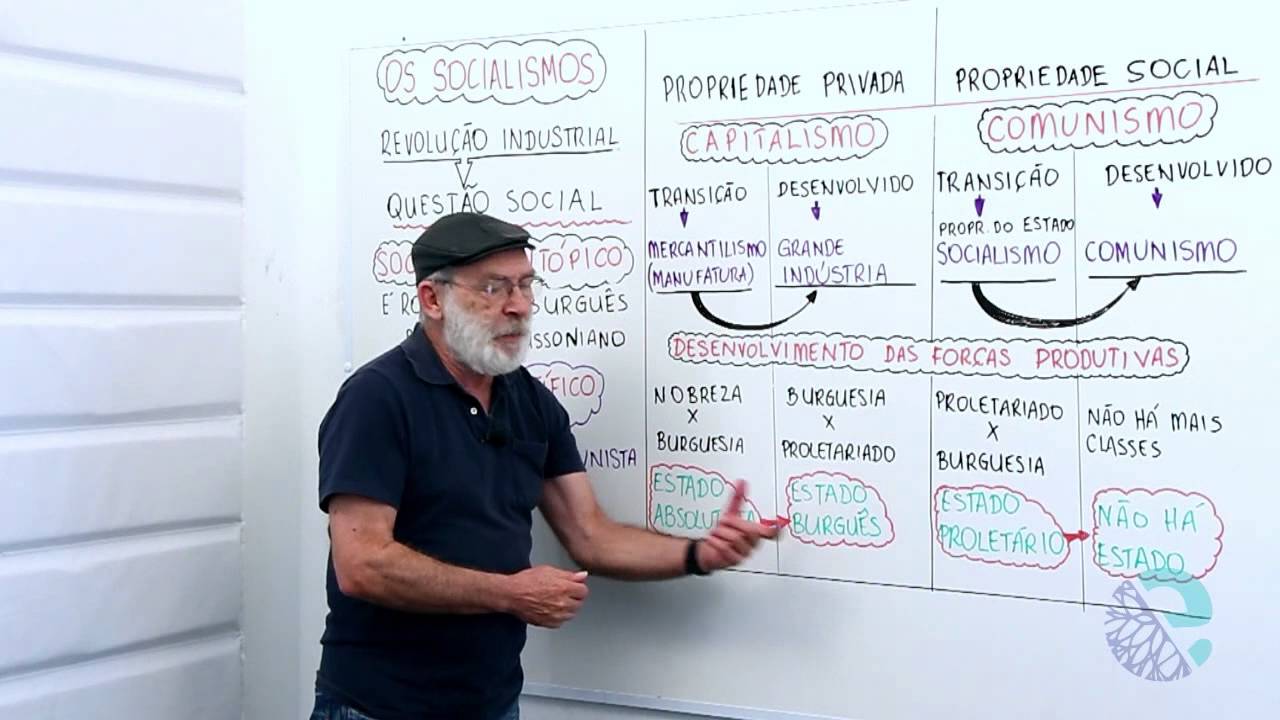 OS SOCIALISMOS
REVOLUÇÃO INDUSTRIAL
QUESTÃO SOCIAL
BURGUÊS
UNISTA
PROPRIEDADE PRIVADA
CAPITALISMO
TRANSIÇÃO
MERCANTILISMO
(MANUFATURA)
DESENVOLVIDO
GRANDE
INDÚSTRIA
PROPRIEDADE SOCIAL
COMUNISMO
TRANSIÇÃO
PROPR. DO ESTADO
SOCIALISMO
DESENVOLVIDO
COMUNISMO
DESENVOLVIMENTO DAS FORÇAS PRODUTIVAS
NOBREZA
X
BURGUESIA
ESTADO
BURGUESIA
X
PROLETARIADO
ESTADO
BURGUÊS
PROLETARIADO
X
BURGUESIA
ESTADO
PROLETÁRIO
NÃO HÁ MAIS
CLASSES
NÃO HÁ
ESTADO